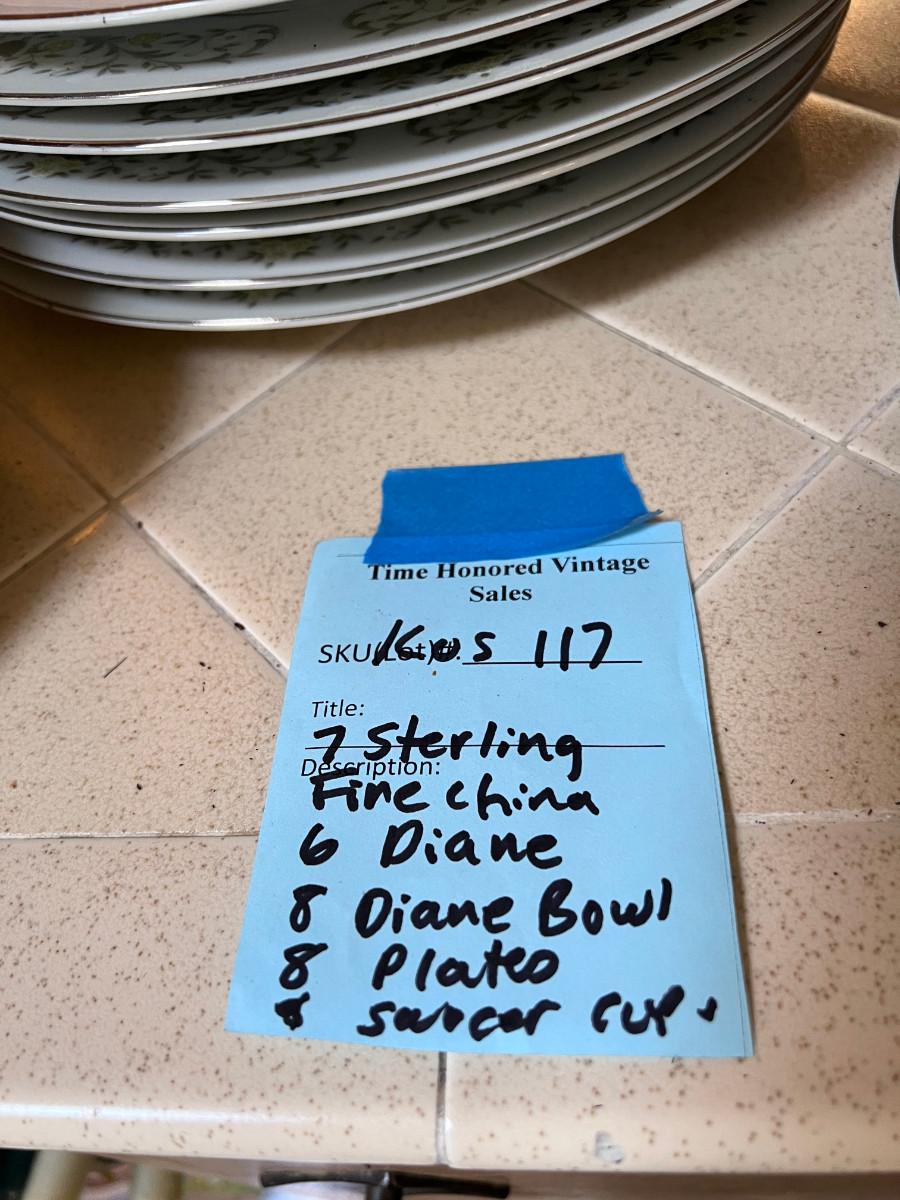 Time Honored Vintage
Sales
SKU(Lot)#: Kos 117
Title:
7 Sterling
Description:
Fine china
6 Diane
8 Diane Bowl
8 Plates
saucer cup